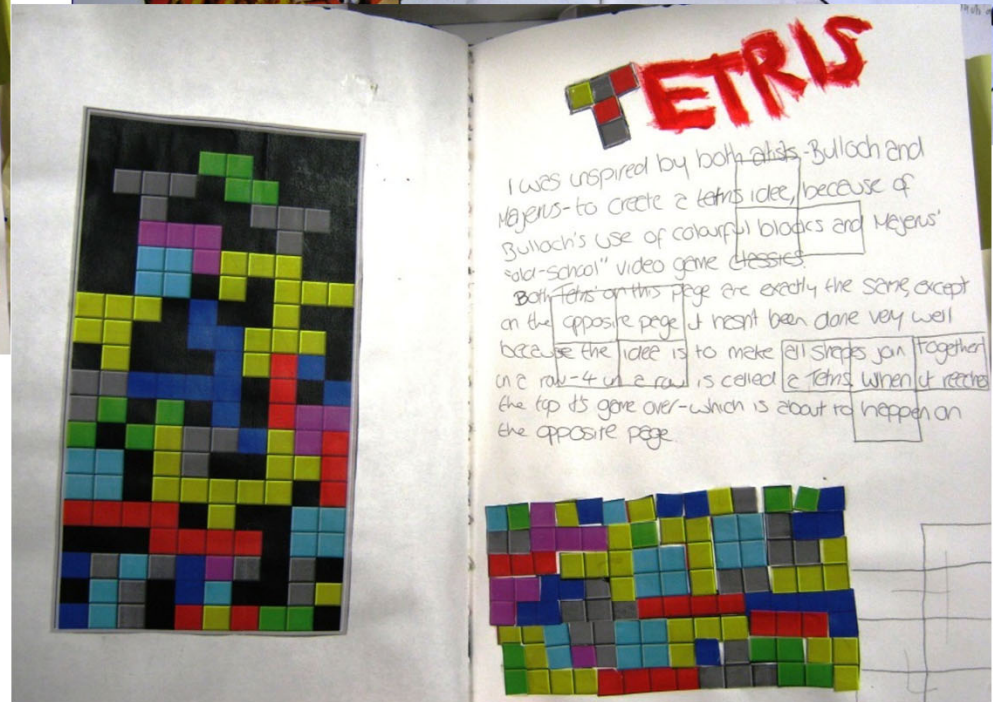 TETRIS
I was inspired by both artists,-Bulloch and
Majerus-to create a tetris idea, because of
Bulloch's use of colourful blocks and Majerus'
"old-school" video game classics.
Both 'Tetris' on this page are exactly the same, except
on the opposite page it hasn't been done very well
because the idea is to make all shapes join together
in a row-4 in a row is called a Tetris. When it reaches
the top it's game over-which is about to happen on
the opposite page.